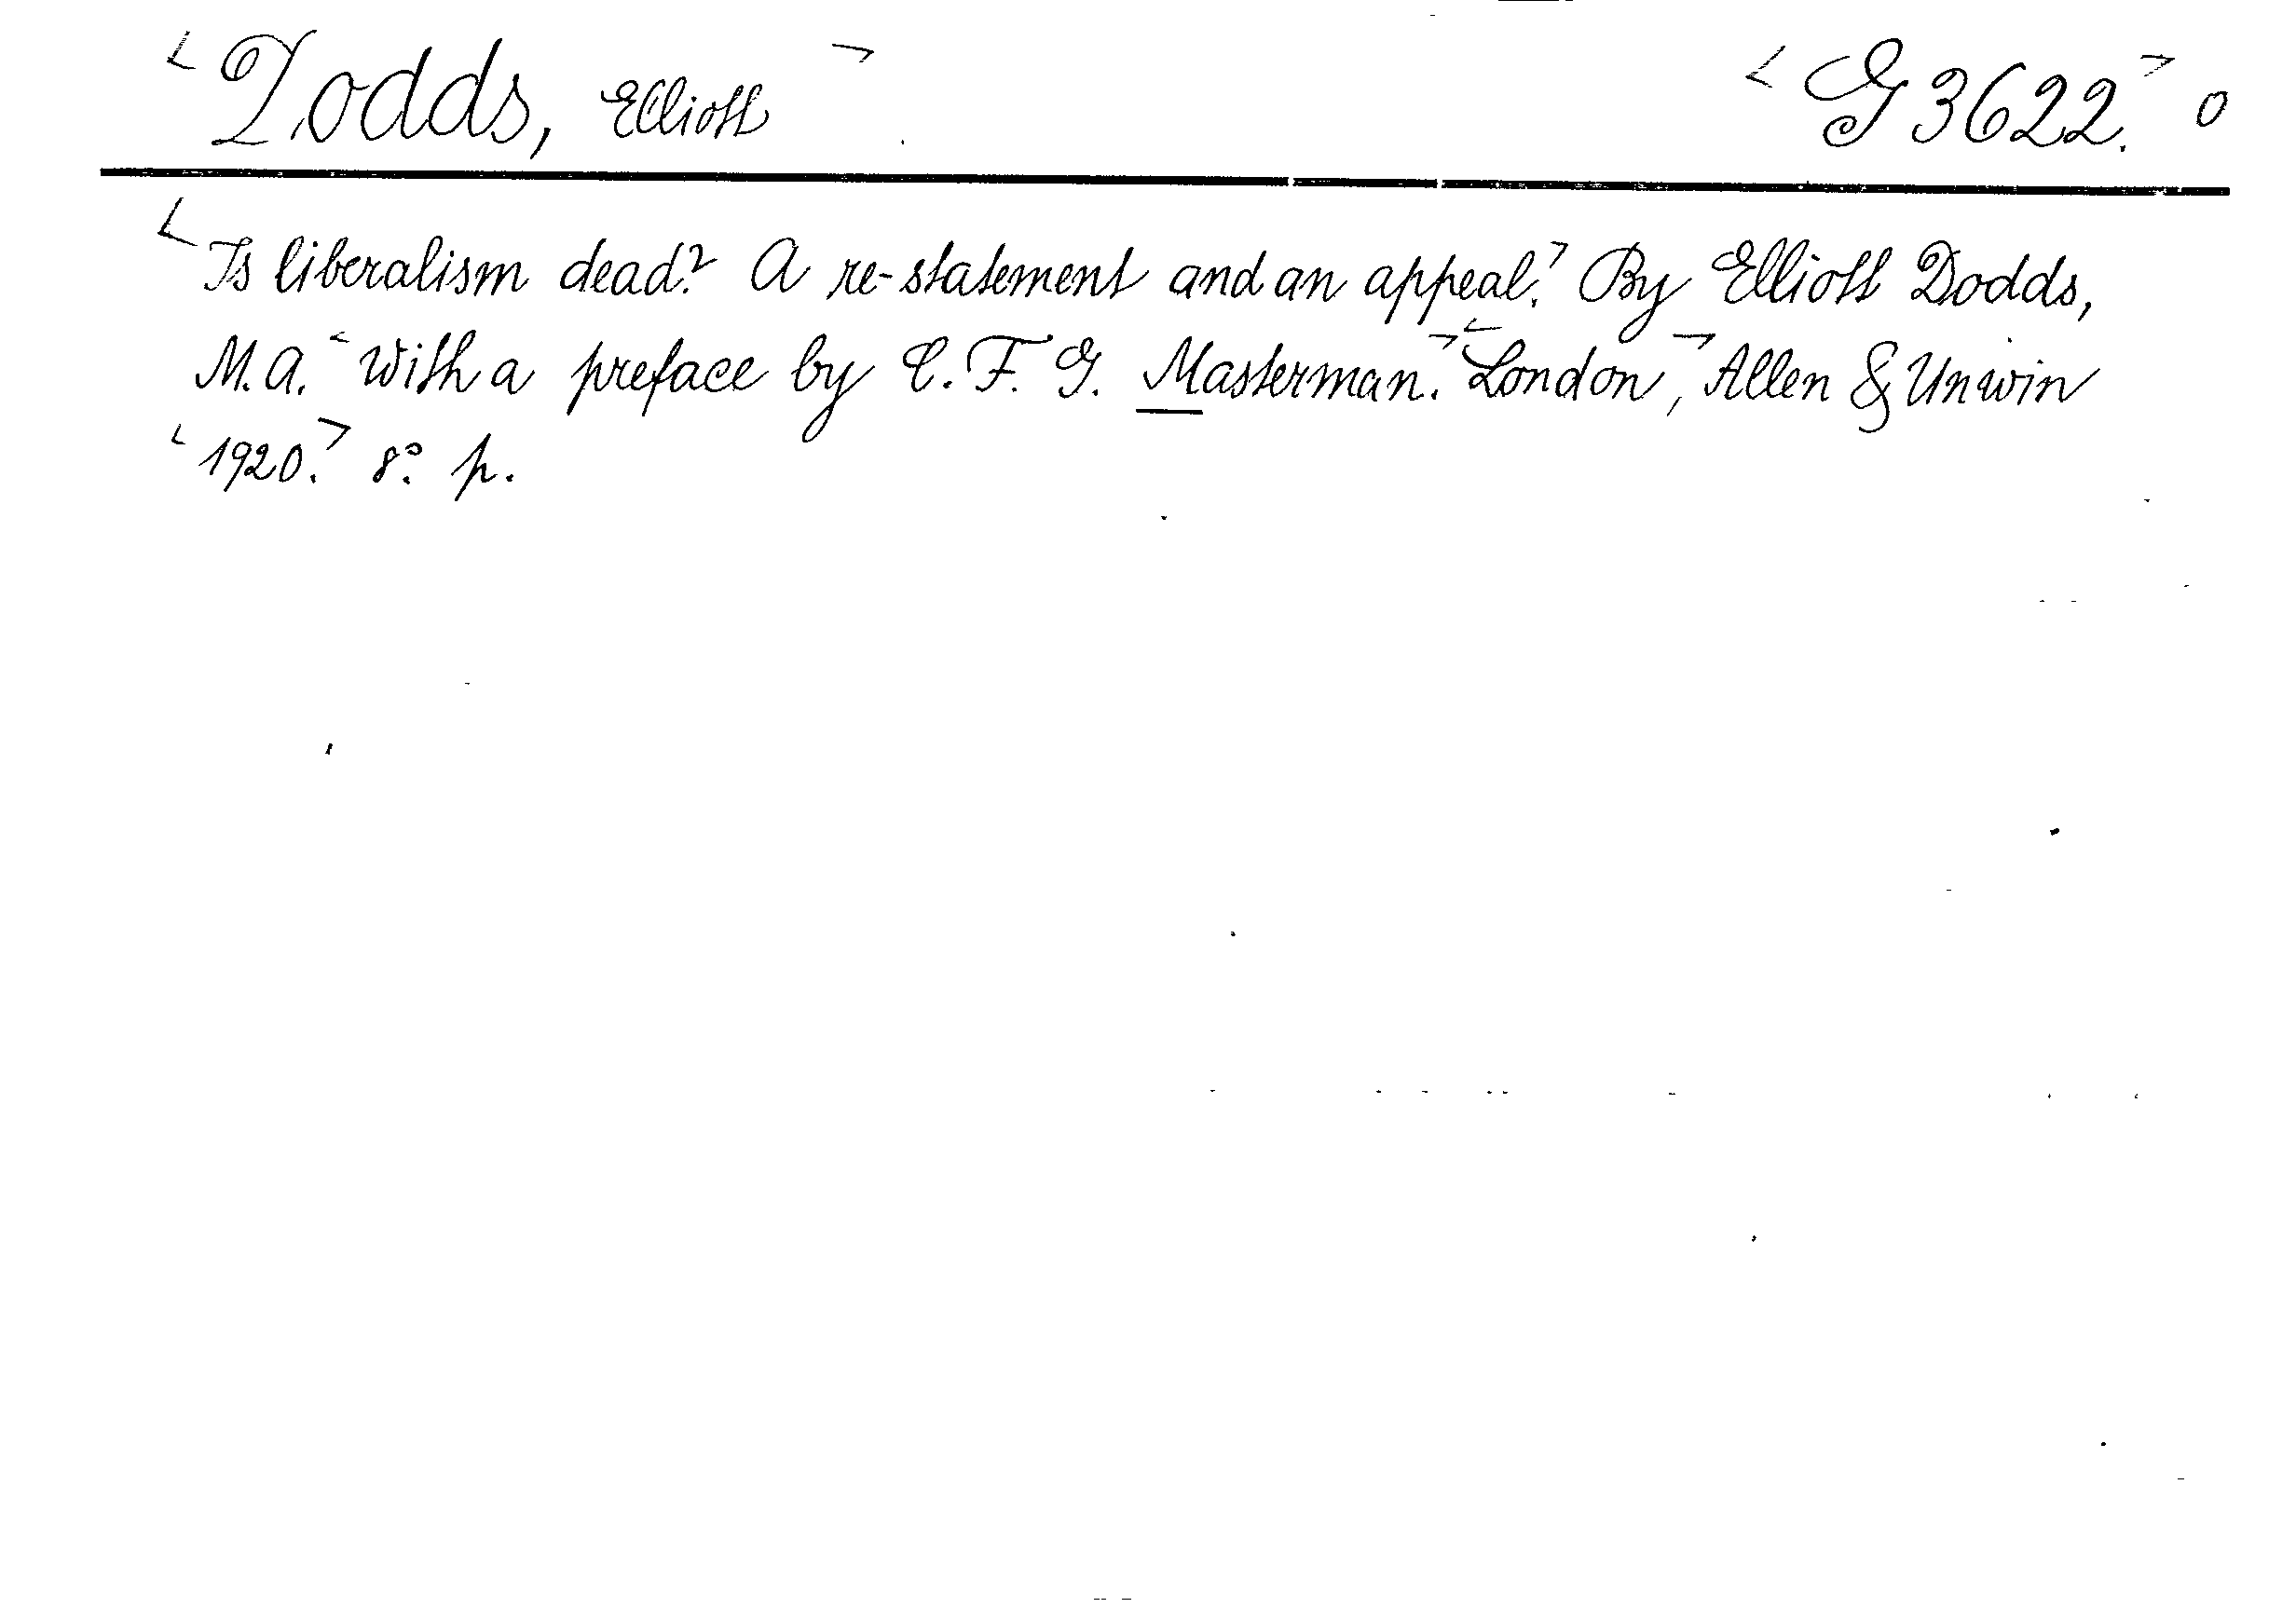 Dodds, Elliott G 3622. 0
Is liberalism dead? A re-statement and an appeal. By Elliott Dodds,
M.A. With a preface by C. F. G. Masterman. London, Allen & Unwin
1920. 8°. p.